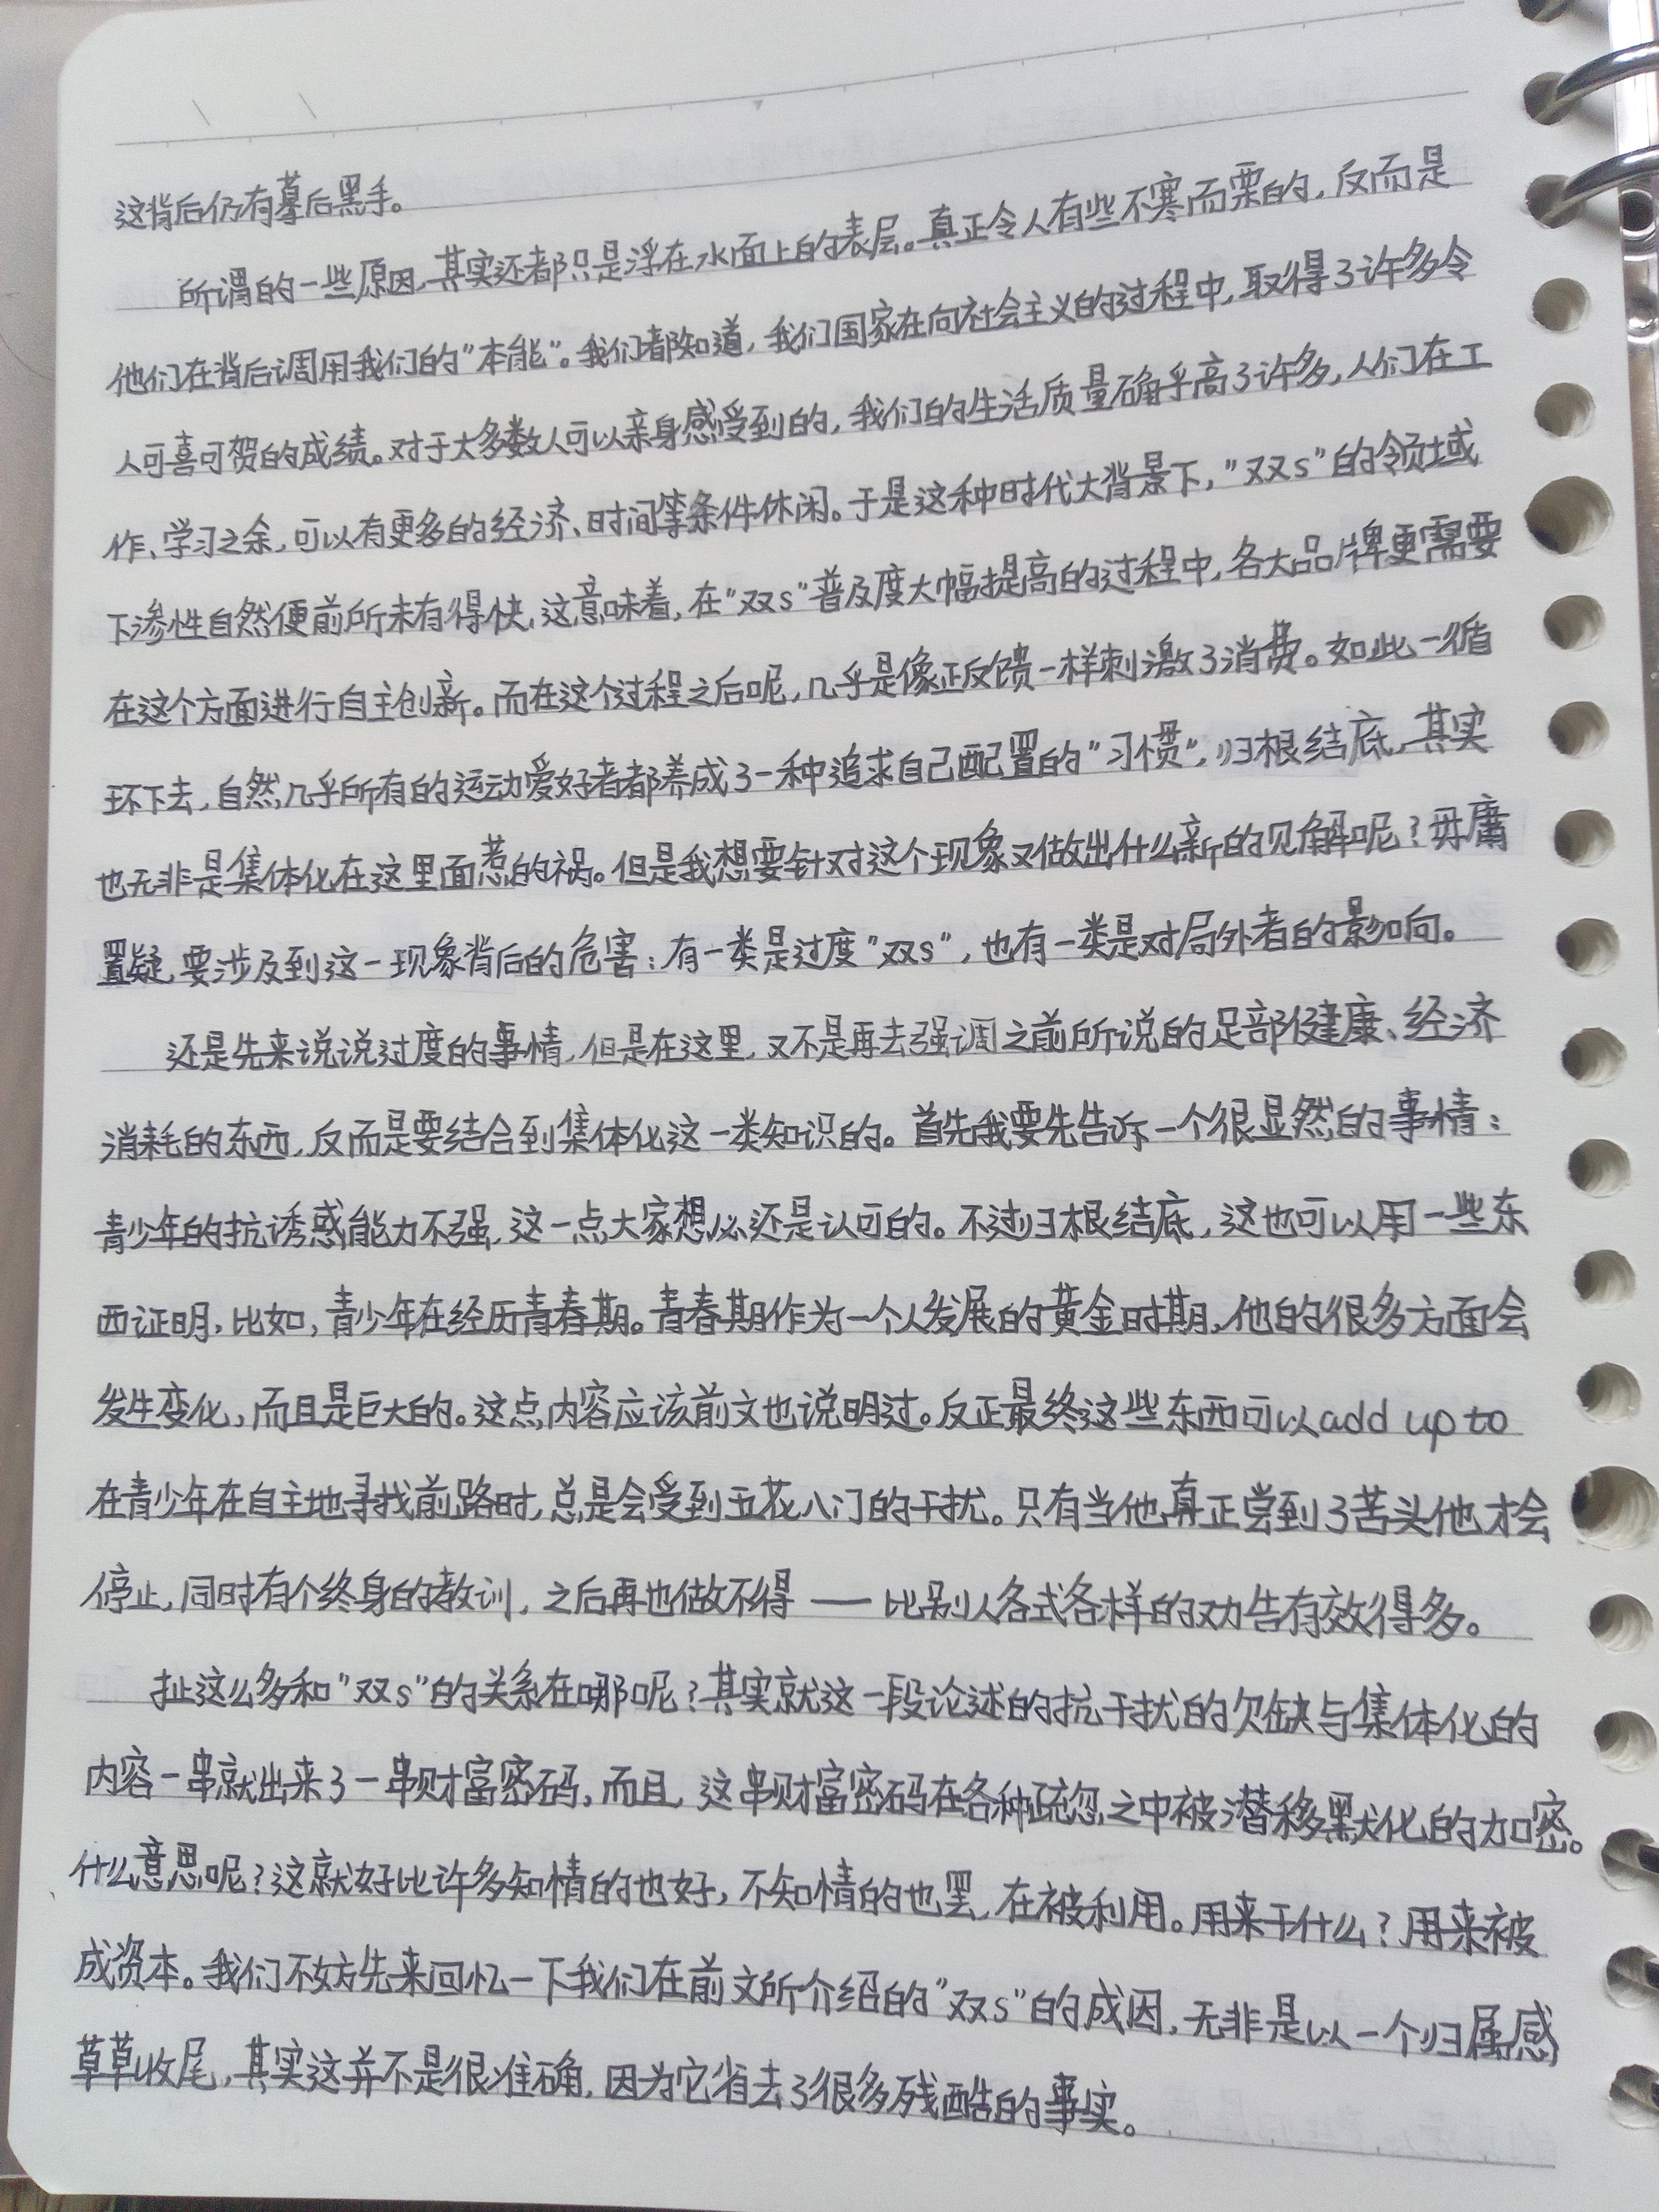 这背后仍有摹后黑手。
所谓的一些原因,其实还都只是浮在水面上的表层。真正令人有些不寒而栗的,反而是
他们在背后调用我们的"本能"。我们都知道,我们国家在向社会主义的过程中,取得了许多令
人可喜可贺的成绩。对于大多数人可以亲身感受到的,我们的生活质量确乎高了许多,人们在工
作、学习之余,可以有更多的经济、时间等条件休闲。于是这种时代大背景下,"双s"的领域
下渗性自然便前所未有得快,这意味着,在"双s"普及度大幅提高的过程中,各大品牌更需要
在这个方面进行自主创新。而在这个过程之后呢,几乎是像正反馈一样刺激了消费。如此一循
环下去,自然几乎所有的运动爱好者都养成了一种追求自己配置的"习惯",归根结底,其实
也无非是集体化在这里面惹的祸。但是我想要针对这个现象又做出什么新的见解呢?毋庸
置疑,要涉及到这一现象背后的危害:有一类是过度"双s",也有一类是对局外者的影响。
还是先来说说过度的事情,但是在这里,又不是再去强调之前所说的足部健康、经济
消耗的东西,反而是要结合到集体化这一类知识的。首先我要先告诉一个很显然的事情:
青少年的抗诱惑能力不强,这一点大家想必还是认可的。不过归根结底,这也可以用一些东
西证明,比如,青少年在经历青春期。青春期作为一个人发展的黄金时期,他的很多方面会
发生变化,而且是巨大的。这点内容应该前文也说明过。反正最终这些东西可以add up to
在青少年在自主地寻找前路时,总是会受到五花八门的干扰。只有当他真正尝到了苦头他才会
停止,同时有个终身的教训,之后再也做不得——比别人各式各样的劝告有效得多。
扯这么多和"双s"的关系在哪呢?其实就这一段论述的抗干扰的欠缺与集体化的
内容一串就出来了一串财富密码,而且,这串财富密码在各种疏忽之中被潜移默化的加密。
什么意思呢?这就好比许多知情的也好,不知情的也罢,在被利用。用来干什么?用来被
成资本。我们不妨先来回忆一下我们在前文所介绍的"双s"的成因,无非是以一个归属感
草草收尾,其实这并不是很准确,因为它省去了很多残酷的事实。